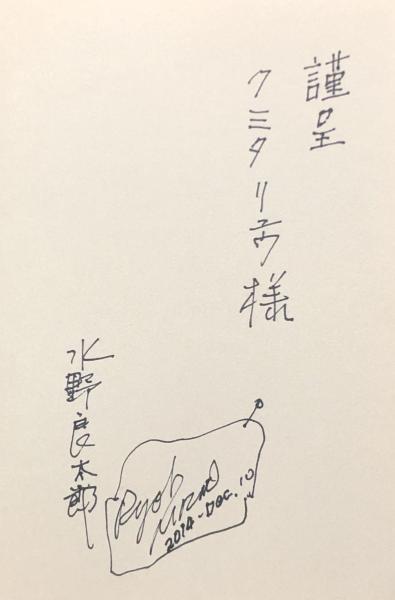 謹呈
クミタリュウ様
水野良太郎
Ryoh
Mizno
2014-DEC.10